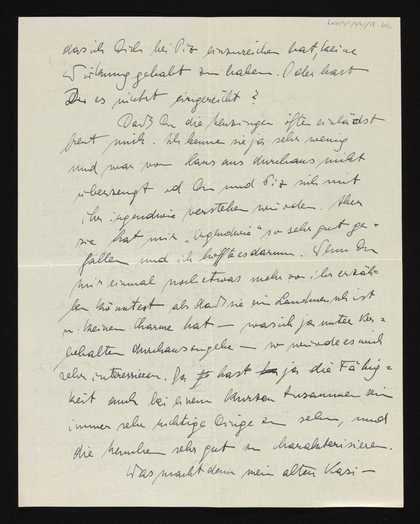 dass ich Dich bei Diz einzureichen bat, keine
Wirkung gehabt zu haben. Oder hast
Du es nicht eingereicht?
Daß Du die öfter einlädst
freut mich. Ich kenne sie ja sehr wenig
und war von Haus aus durchaus nicht
überzeugt ob Du und Diz sich mit
ihr irgendwie verstehen würden. Aber
sie hat mir "irgendwie" so sehr gut ge-
fallen und ich hoffte es darum. Wenn Du
mir einmal noch etwas mehr von ihr erzäh-
len könntest als dass sie ein Landmensch ist
u. keinen Charme hat – was ich ja unter Vor-
behalten durchaus zugebe – so würde es mich
sehr interessieren. Du hast ja die Fähig-
keit auch bei einem kurzen Zusammensein
immer sehr richtige Dinge zu sehen, und
die Menschen sehr gut zu charakterisieren.
Was macht denn mein alter Kasi-